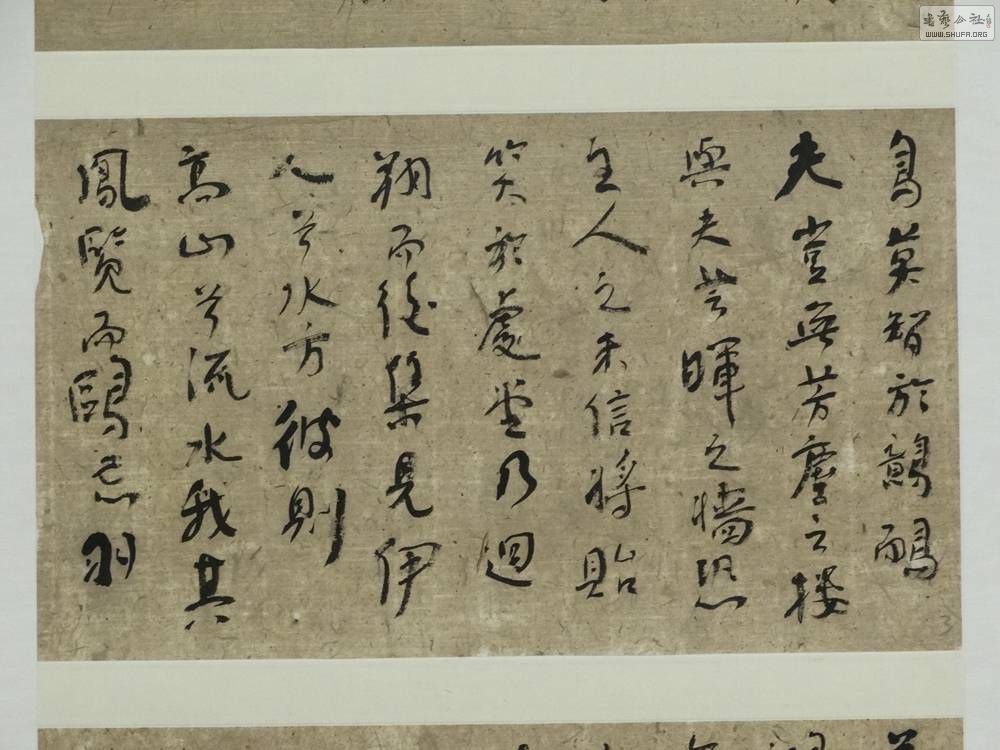 鳥莫智於鷾鴯
夫豈無芳塵之樓
與夫芸暉之牆恐
主人之未信將貽
笑於處堂乃迴
翔而後集見伊
人兮水方彼則
高山兮流水我其
鳳覽而鷗忘羽
3
书艺公社
WWW.SHUFA.ORG